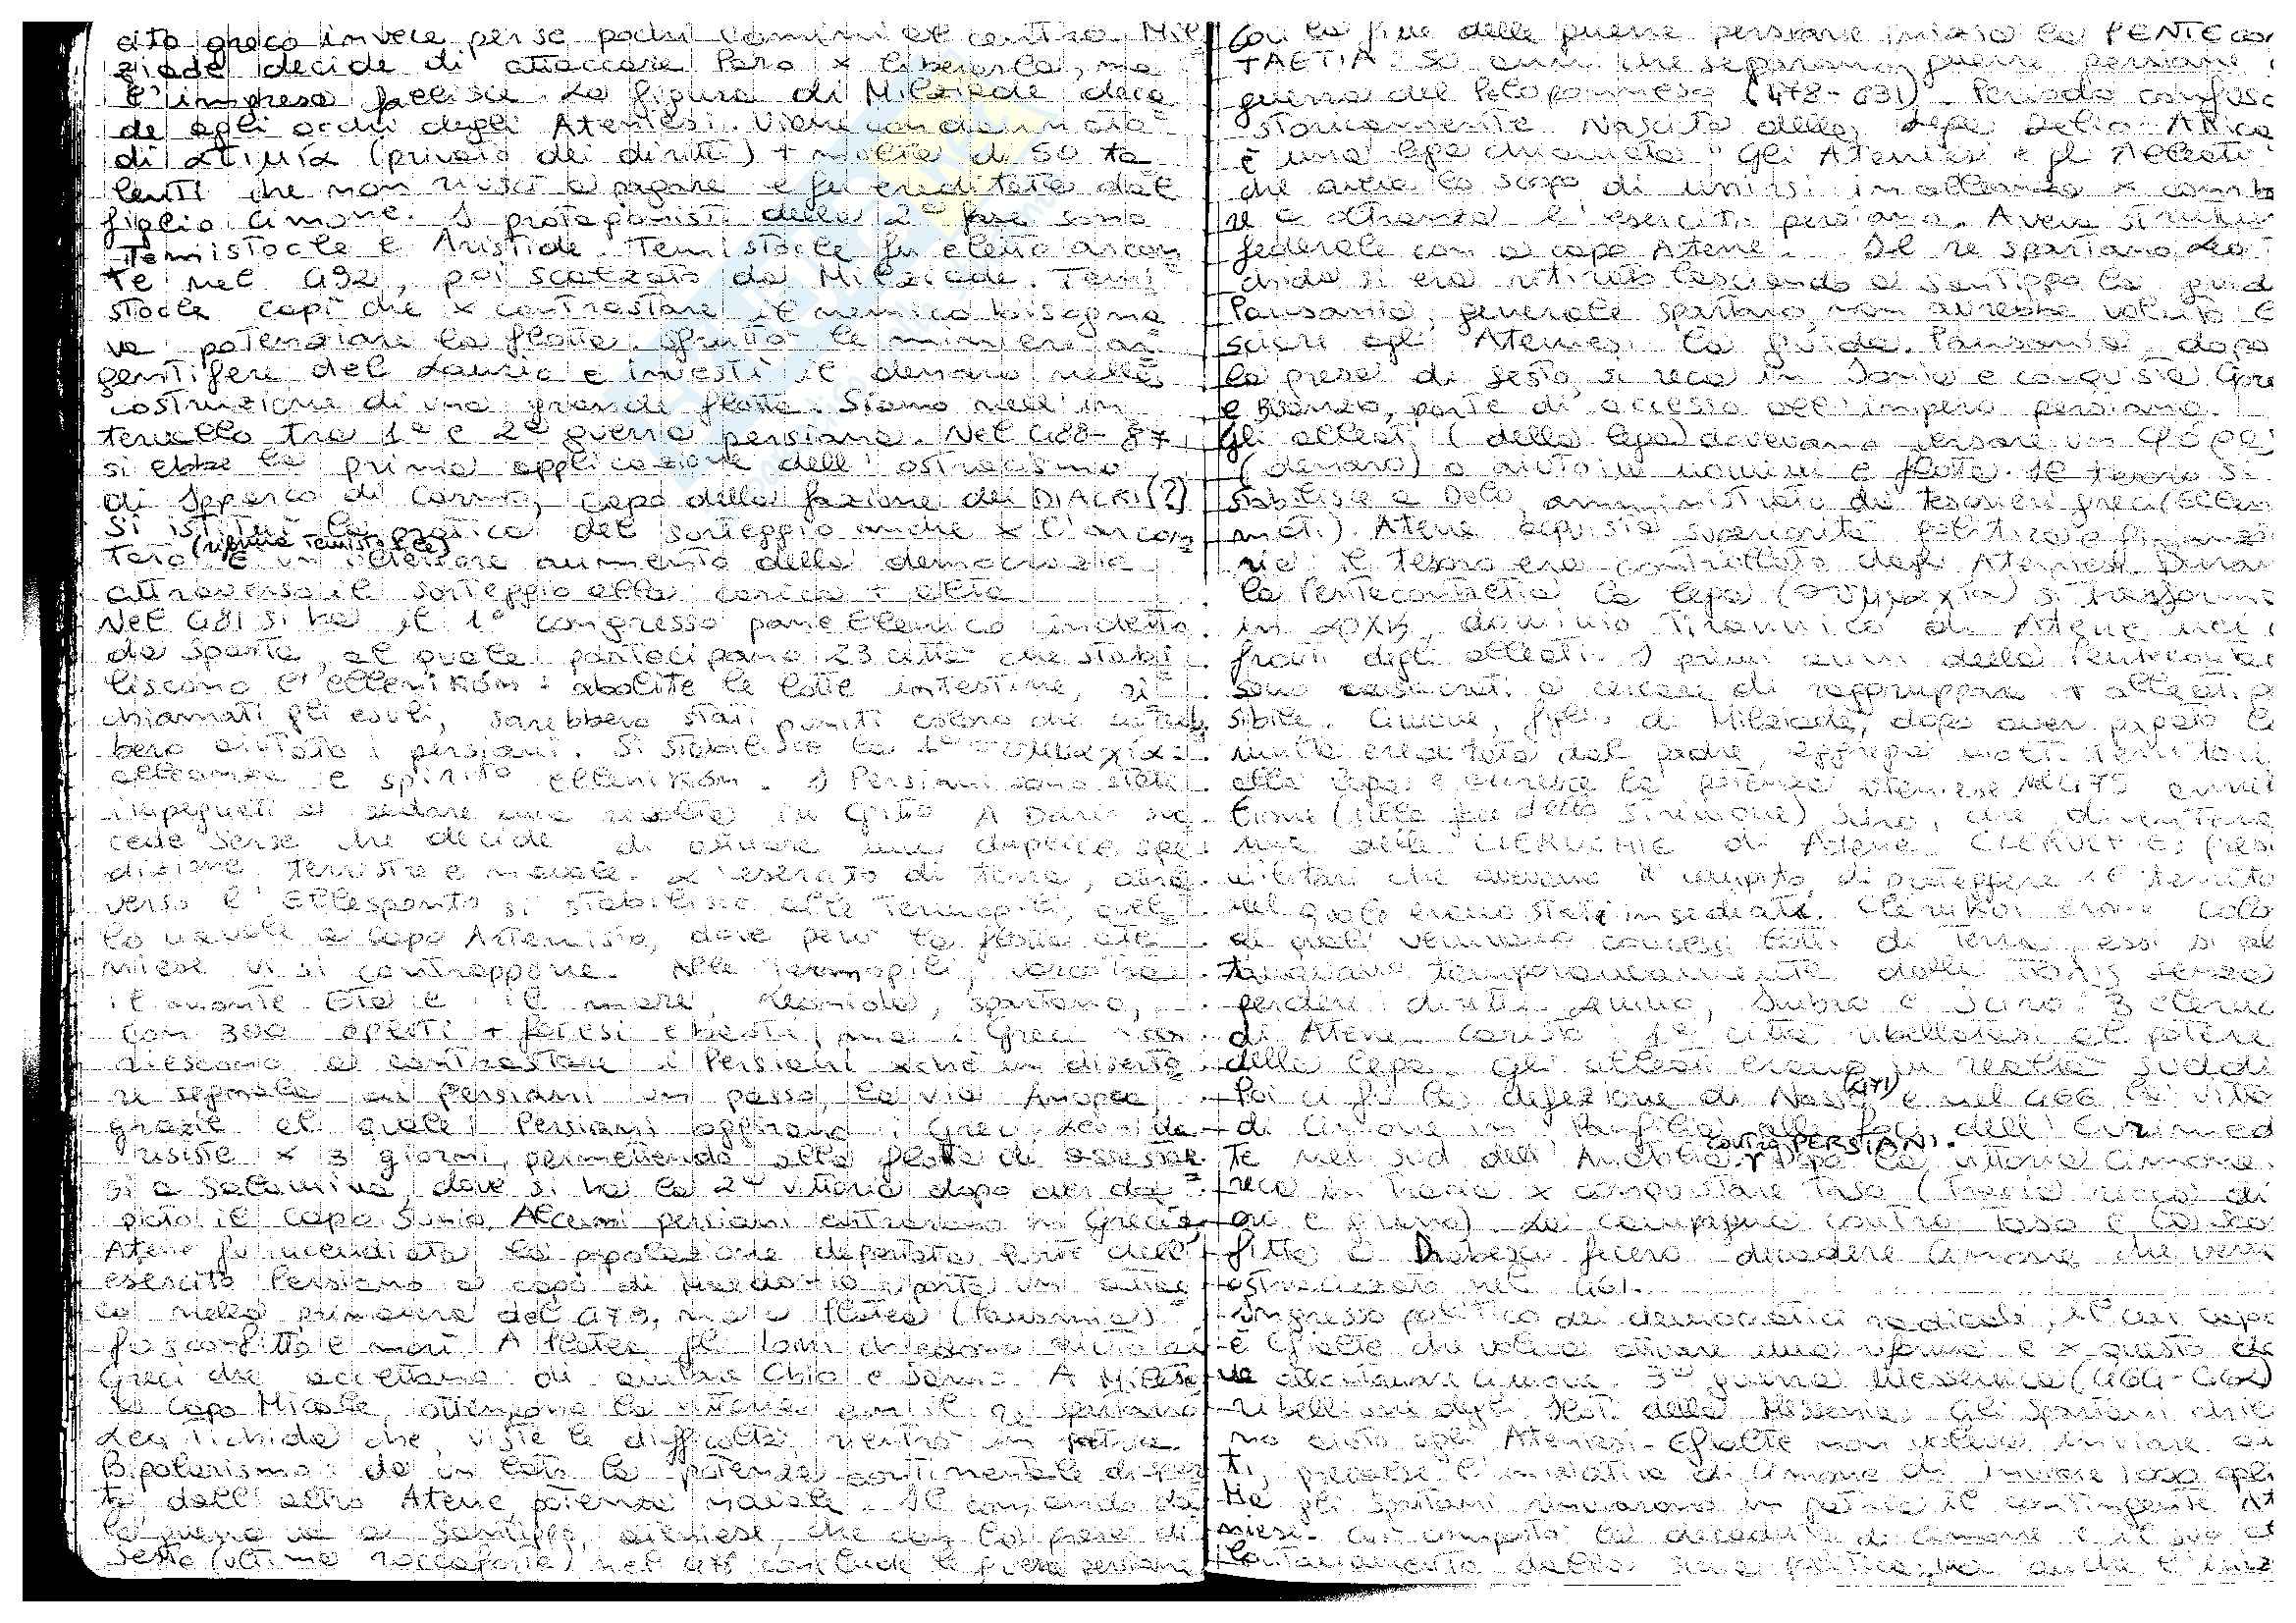 cito greco invece perse pochi uomini al centro. Mil
ziade decide di attaccare Paro x liberarla, ma
l'impresa fallisce. La figura di Milziade deca
de agli occhi degli Ateniesi. Viene condannato
di ατιμία (privato dei diritti) + multa di 50 ta
lenti che non riuscì a pagare e fu ereditata dal
figlio Cimone. I protagonisti della 2ª fase sono
Temistocle e Aristide. Temistocle fu eletto arcon
te nel 492, poi scalzato da Milziade. Temi
stocle capì che x contrastare il nemico bisogna
va potenziare la flotta. Sfruttò le miniere ar
gentifere del Laurio e investì il denaro nella
costruzione di una grande flotta. Siamo nell'in
tervallo tra 1ª e 2ª guerra persiana. Nel 488-87
si ebbe la prima applicazione dell'ostracismo
di Ipparco di Carmo, capo della fazione dei DIACRI(?)
Si istituì la pratica del sorteggio anche x l'arcon
tato (riforma Temistocle) È un ulteriore aumento della democrazia
attraverso il sorteggio alla carica + alta.
Nel 481 si ha il 1° congresso panellenico indetto
da Sparta, al quale partecipano 23 città che stabi
liscono l'ellenikón: abolite le lotte intestine, ri
chiamati gli esuli, sarebbero stati puniti coloro che
bero aiutato i persiani. Si stabilisce la 1ª συμμαχία:
alleanza e spirito ellenikón. I Persiani sono stati
impegnati a sedare una rivolta in Egitto. A Dario suc
cede Serse che decide di attuare una duplice spe
dizione terrestre e navale. L'esercito di terra, attra
verso l'Ellesponto si stabilisce alle Termopili, quel
lo navale a capo Artemisio, dove però la flotta ate
niese vi si contrappone. Alle Termopili, varco tra
il monte Eta e il mare, Leonida, spartano,
con 300 opliti + focesi e beoti, ma i Greci non
riescono a contrastare i Persiani xché un diserto
re segnala ai Persiani un passo, la via Anopea,
grazie al quale i Persiani aggirano i Greci. Leonida
resiste x 3 giorni, permettendo alla flotta di assestar
si a Salamina, dove si ha la 2ª vittoria dopo aver dop
piato il capo Sunio. Alcuni persiani entrarono in Grecia,
Atene fu incendiata, la popolazione deportata. Parte dell'
esercito Persiano a capo di Mardonio riporta un attac
co nella primavera del 479, ma a Platea (Pausania)
fu sconfitto e morì. A Platea gli Ioni chiedono aiuto ai
Greci che accettano di aiutare Chio e Samo. A Mileto
to capo Micale, ottengono la vittoria con il re spartano
Leotichida che, viste le difficoltà rientrò in patria.
Bipolarismo: da un lato la potenza continentale di Spar
ta, dall'altro Atene potenza navale. Il comando del
la guerra va a Santippo, ateniese, che con la presa di
Sesto (ultima roccaforte) nel 478 conclude le guerre persiane
Con la fine delle guerre persiane inizia la PENTECON
TAETIA: 50 anni che separano guerre persiane e
guerra del Peloponneso (478-431). Periodo confuso
storicamente. Nascita della Lega Delio-Attica
È una lega chiamata "Gli Ateniesi e gli Alleati"
che aveva lo scopo di unirsi in alleanza x combatte
re a oltranza l'esercito persiano. Aveva struttur
federale con a capo Atene. Il re spartano Leo
tichida si era ritirato lasciando a Santippo la guid
Pausania, generale spartano, non avrebbe voluto l
sciare agli Ateniesi la guida. Pausania, dopo
la presa di Sesto, si reca in Ionia e conquista Cipro
e Bisanzio, porte di accesso all'impero persiano.
Gli alleati (della lega) dovevano versare un φόρος
(denaro) o aiuto in uomini e flotta. Il tesoro si
stabilisce a Delo amministrato da tesorieri greci (Ellen
mioti). Atene acquista superiorità politica e finanzia
ria: il tesoro era controllato dagli Ateniesi. Duran
la Pentecontaetia la lega (συμμαχία) si trasforma
in αρχή, dominio tirannico di Atene nei c
fronti degli alleati. I primi anni della Pentecontae
sono consacrati a cercare di raggruppare + alleati po
sibile. Cimone, figlio di Milziade, dopo aver pagato la
multa ereditata dal padre, aggrega molti territori
alla lega e accresce la potenza ateniese. Nel 475
Eione (sulla foce dello Strimone) Sciro, che diventano
una delle CLERUCHIE di Atene. CLERUCHIE: presi
militari che avevano il compito di proteggere il territo
nel quale erano stati insediati. Clerukoi erano colo
ai quali venivano concessi lotti di terra, essi si al
tanavano temporaneamente dalla πόλις senza
perdere i diritti. Lemno, Imbro e Sciro: 3 cleruc
di Atene. Caristo: 1ª città ribellatasi al potere
della lega. Gli alleati erano in realtà suddi
Poi ci fu la defezione di Nasso (471) e nel 466 la vitto
di Cimone in Panfilia alle foci dell'Eurimed
te nel sud dell'Anatolia contro PERSIANI. Dopo la vittoria Cimone
reca in Tracia x conquistare Taso (Tracia ricca di
oro e grano). La campagna contro Taso e la scon
fitta a Drabesco fecero decadere Cimone che venn
ostracizzato nel 461.
Ingresso politico dei democratici radicali, il cui capo
è Efialte che voleva attuare una riforma e x questo do
ve allontanare Cimone. 3ª guerra Messenica (464-462)
ribellione degli Iloti della Messenia. Gli Spartani chie
no aiuto agli Ateniesi. Efialte non voleva inviare aiu
ti, prevalse l'iniziativa di Cimone di inviare 1000 opli
Ma gli Spartani rinviarono in patria il contingente At
niese. Ciò comportò la decaduta di Cimone e il suo al
lontanamento dalla scena politica, ma anche l'iniz